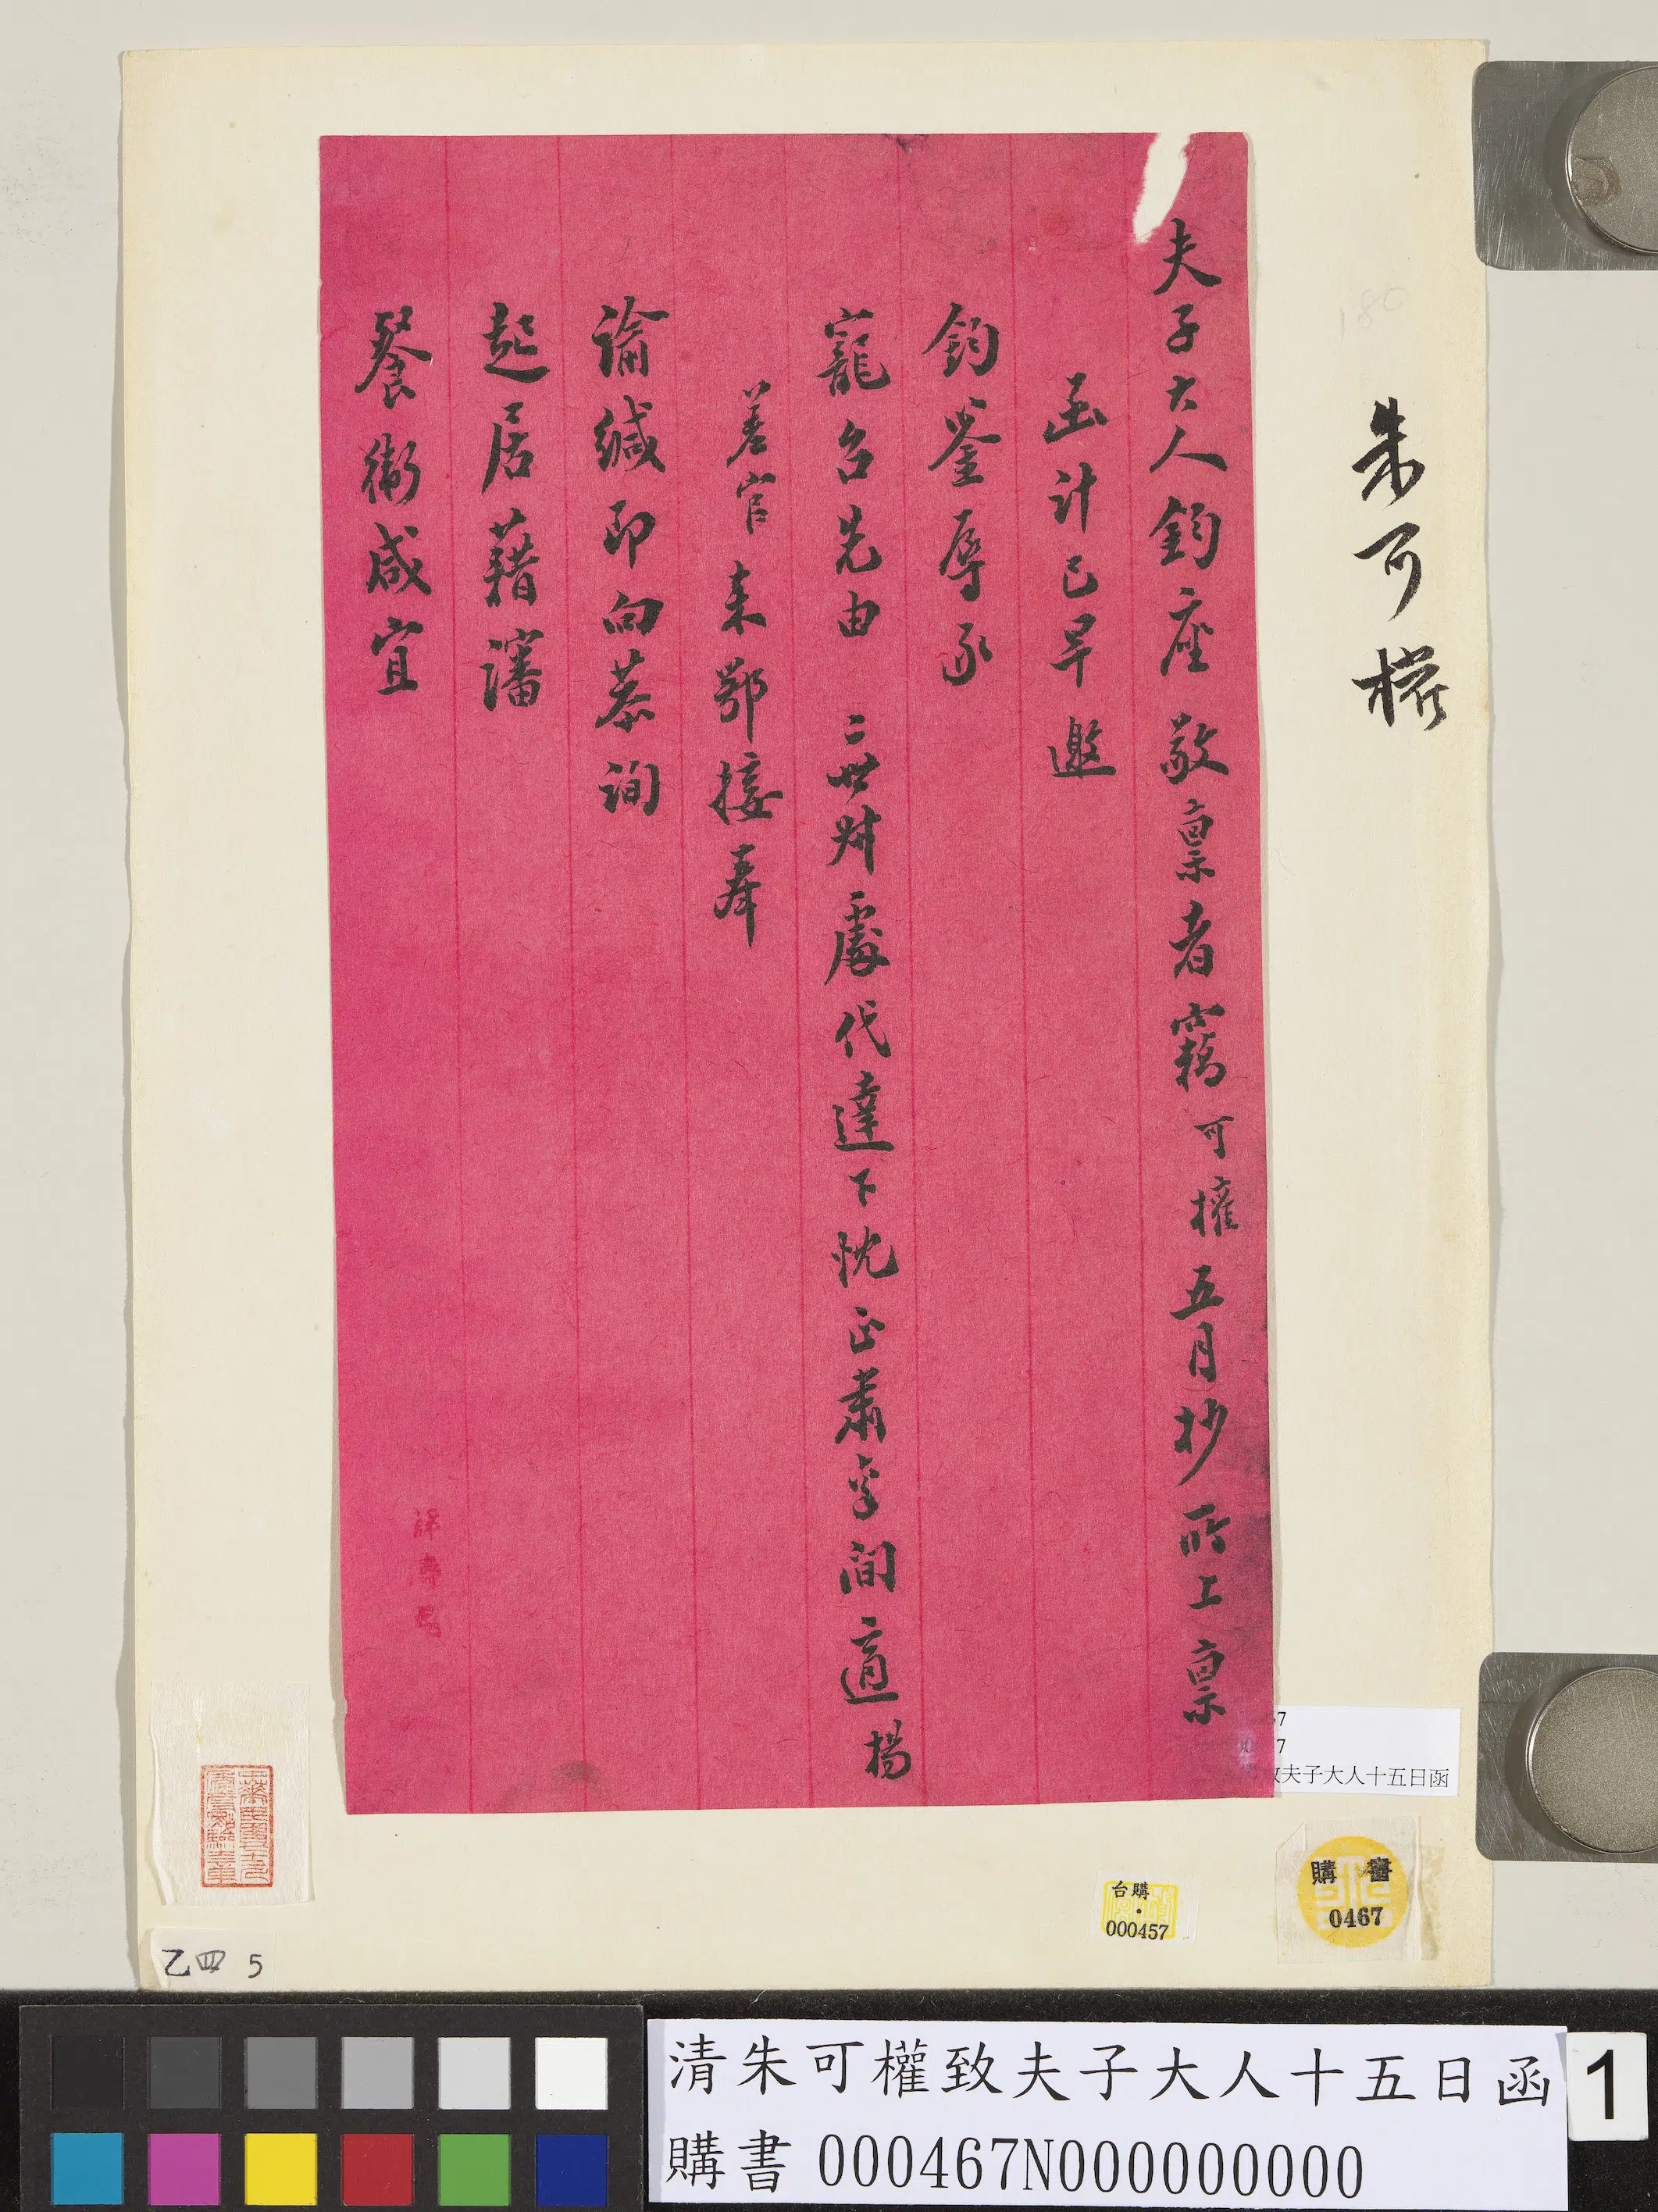 朱可權
夫子大人鈞座敬稟者竊可權五月抄所上稟
函計已早邀
鈞鉴辱承
寵召先由二世叔處代達下忱正肅牽間適楊
差官来鄂接奉
諭緘即向恭詢
起居藉瀋
餐衛咸宜
57
7
致夫子大人十五日函
購書
0467
台購
000457
乙四 5
清朱可權致夫子大人十五日函
購書 000467N000000000
1